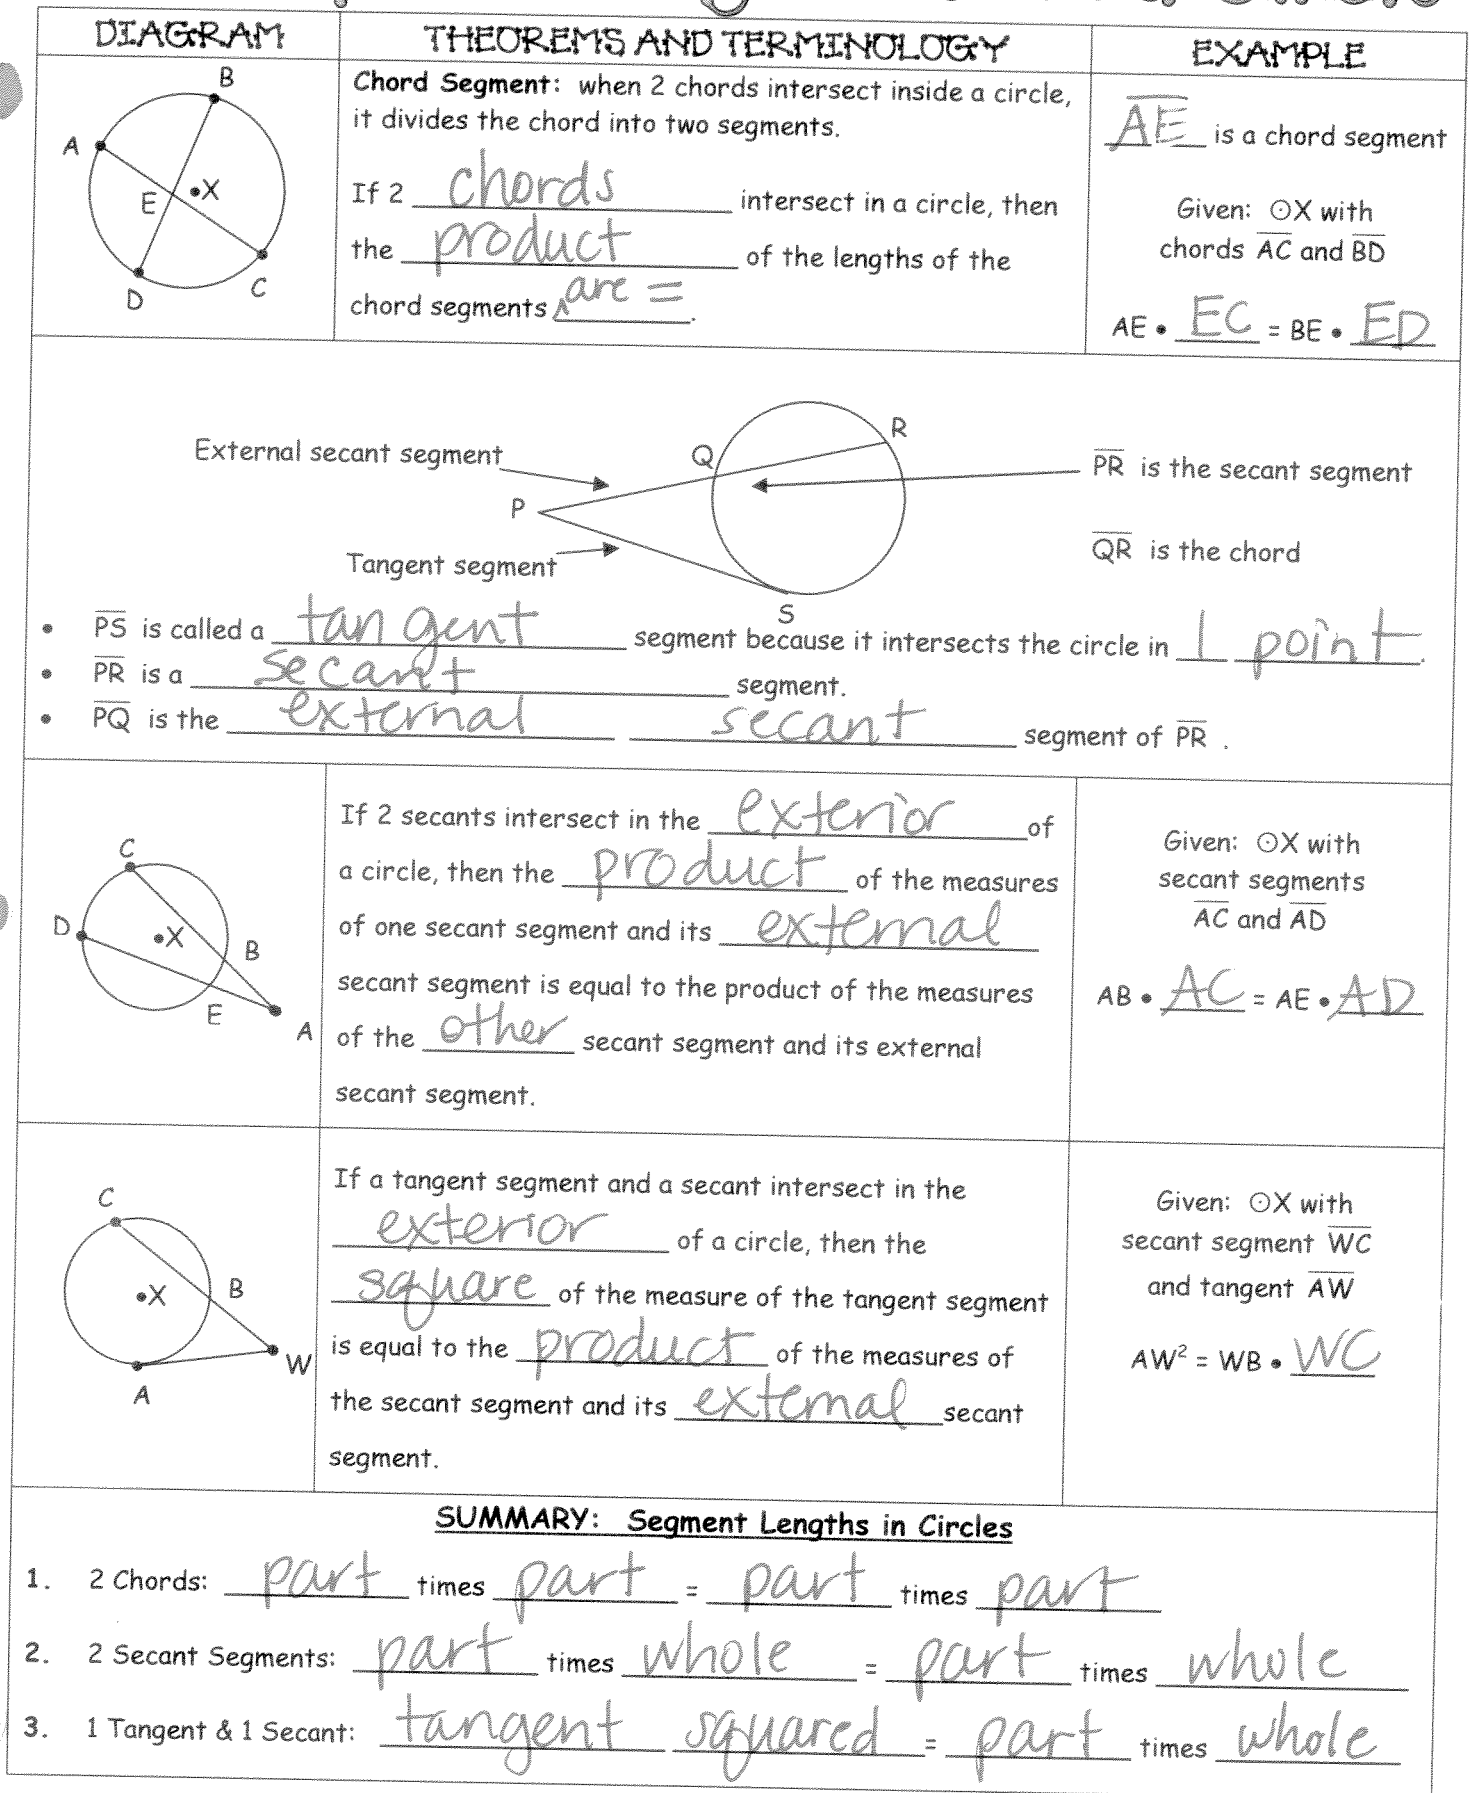 DIAGRAM THEOREMS AND TERMINOLOGY EXAMPLE
B
A
E
X
D
C
Chord Segment: when 2 chords intersect inside a circle,
it divides the chord into two segments.
If 2 chords intersect in a circle, then
the product of the lengths of the
chord segments ^are =.
AE is a chord segment
Given: ⊙X with
chords AC and BD
AE • EC = BE • ED
External secant segment
Q
R
P
Tangent segment
S
PR is the secant segment
QR is the chord
• PS is called a tangent segment because it intersects the circle in 1 point.
• PR is a secant segment.
• PQ is the external secant segment of PR .
C
D
X
B
E
A
If 2 secants intersect in the exterior of
a circle, then the product of the measures
of one secant segment and its external
secant segment is equal to the product of the measures
of the other secant segment and its external
secant segment.
Given: ⊙X with
secant segments
AC and AD
AB • AC = AE • AD
C
X
B
W
A
If a tangent segment and a secant intersect in the
exterior of a circle, then the
square of the measure of the tangent segment
is equal to the product of the measures of
the secant segment and its external secant
segment.
Given: ⊙X with
secant segment WC
and tangent AW
AW² = WB • WC
SUMMARY: Segment Lengths in Circles
1. 2 Chords: part times part = part times part
2. 2 Secant Segments: part times whole = part times whole
3. 1 Tangent & 1 Secant: tangent squared = part times whole